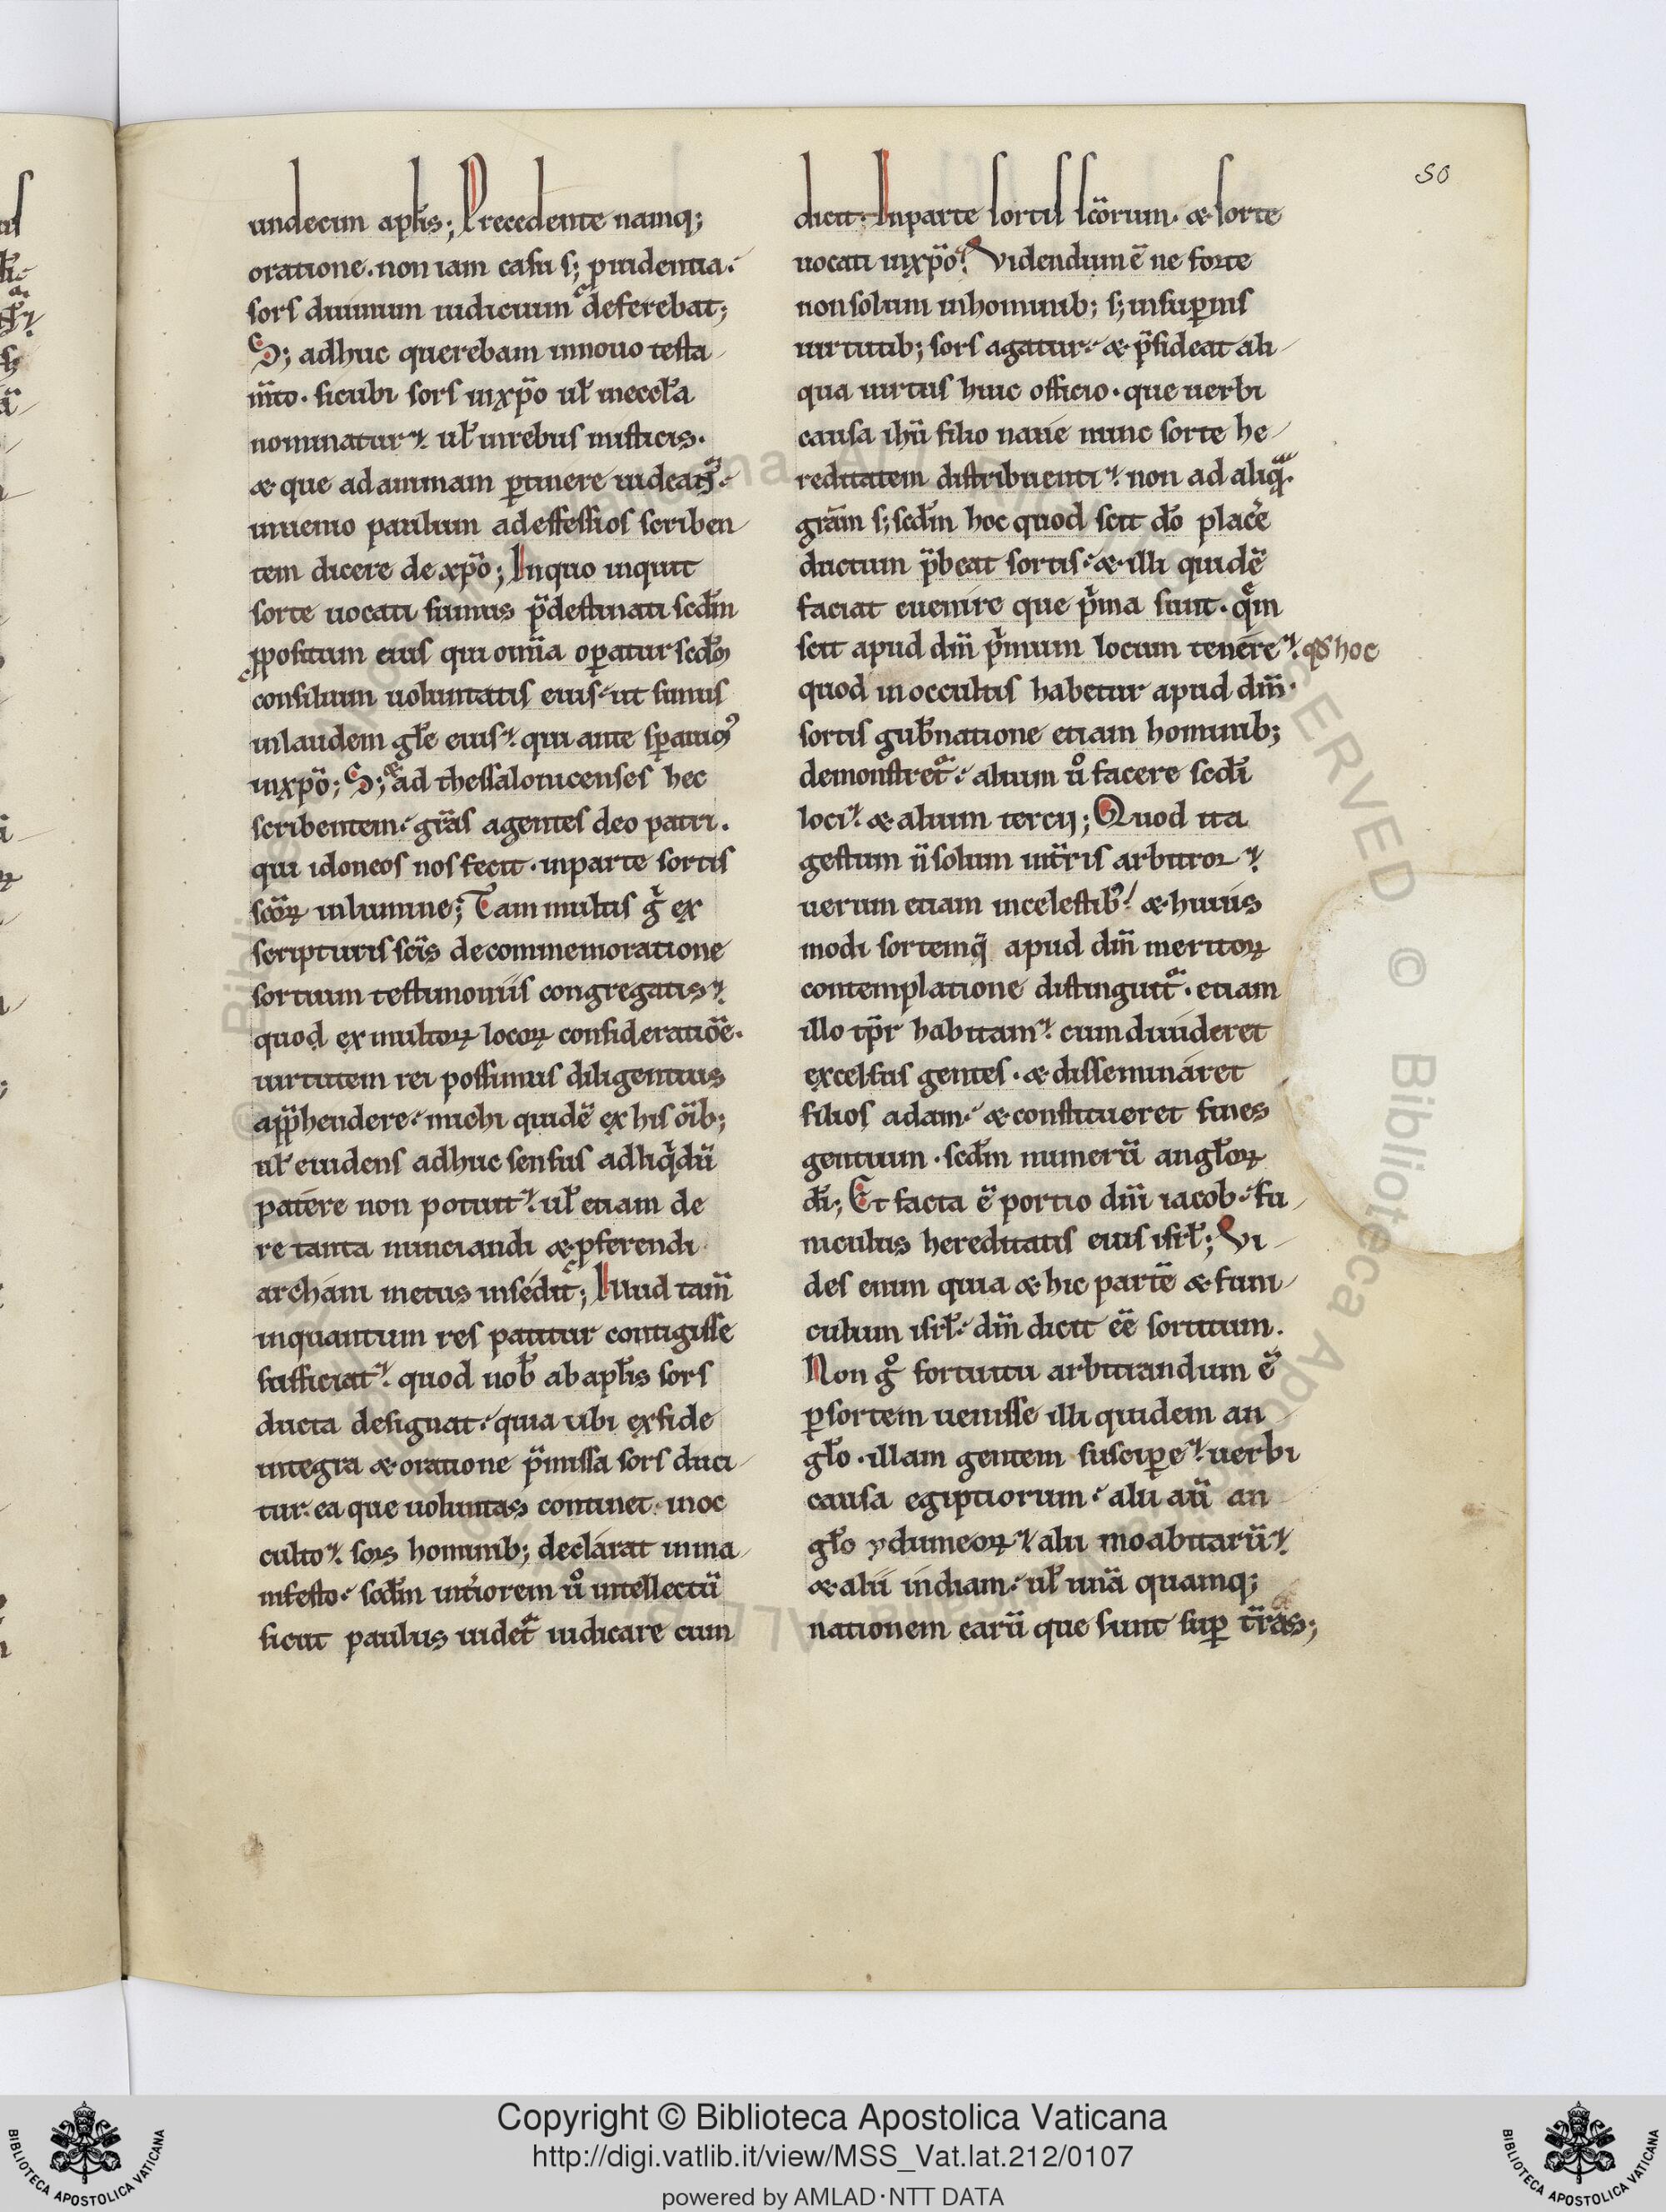 50
undecim apl̄is; Precedente namq;
oratione. non iam casu s; puidentia.
sors diuinum iudicium deferebat;
S; adhuc querebam innouo testa
m̄to. sicubi sors inxp̄o ul̄ ineccl̄a
nominatur. ul̄ inrebus misticis.
& que adanimam ꝑtinere uideat̄.
inuenio paulum adeffesios scriben
tem dicere de xp̄o; Inquo inquit
sorte uocati sumus p̄destinati scd̄m
ꝓpositum eius qui om̄ia oꝑatur scd̄m
consilium uoluntatis eius. ut simus
inlaudem gl̄e eius. qui ante sꝑauimꝰ
inxp̄o; S; & ad thessalonicenses hec
scribentem. gr̄as agentes deo patri.
qui idoneos nos fecit. inparte sortis
sc̄oꝝ inlumine; Tam multis g̊ ex
scripturis sc̄is decommemoratione
sortium testimoniis congregatis.
quod ex multoꝝ locoꝝ consideratiōe.
uirtutem rei possimus diligentius
app̄hendere. michi quidē ex his ōib;
ul̄ euidens adhuc sensus adliq̊dū
patere non potuit. ul̄ etiam de
re tanta nunciandi & ꝓferendi
archani metus insedit; Illud tam̄
inquantum res patitur contigisse
sufficiat. quod nob̄ ab apl̄is sors
ducta designat. quia ubi exfide
integra & oratione p̄missa sors duci
tur. ea que uoluntas continet inoc
culto. sors hominib; declarat inma
nifesto. scd̄m int̄iorem ů intellectū
sicut paulus uidet̄ iudicare cum
dicit. Inparte sortis sc̄orum. & sorte
uocati inxp̄o. Videndum ē ne forte
nonsolum inhominib; s; insuꝑnis
uirtutib; sors agatur. & p̄sideat ali
qua uirtus huic officio. que uerbi
causa ih̄u filio naue nunc sorte he
reditatem distribuenti. non ad aliq̄.
gr̄am s; scd̄m hoc quod scit d̄o placē
ductum p̄beat sortis. & illi quidē
faciat euenire que p̊ma sunt. q̄m
scit apud dn̄m p̊mum locum tenere. qd̄ hoc
quod inoccultis habetur apud dn̄m.
sortis gub̄natione etiam hominib;
demonstret̄. alium ů facere scd̄i
loci. & alium tercij; Quod ita
gestum n̄ solum int̄ris arbitror.
uerum etiam incelestibꝰ. & huius
modi sortemq̄ apud dn̄m meritoꝝ
contemplatione distinguit̄. etiam
illo tp̄r habitam. cum diuideret
excelsus gentes. & disseminaret
filios adam. & constitueret fines
gentium. scd̄m numerū angl̄oꝝ
d̄i; Et facta ē portio dn̄i iacob. fu
niculus hereditatis eius isrl̄; Vi
des enim quia & hic partē & funi
culum isrl̄. dn̄m dicit ēē sortitum.
Non g̊ fortuitu arbitrandum ē
ꝑsortem uenisse illi quidem an
gl̄o. illam gentem susciꝑe. uerbi
causa egiptiorum. alii aū an
gl̄o ydumeoꝝ. alii moabitarū.
& alii indiam. ul̄ unā quamq;
nationem earū que sunt suꝑ t̄ras;
Copyright © Biblioteca Apostolica Vaticana
http://digi.vatlib.it/view/MSS_Vat.lat.212/0107
powered by AMLAD·NTT DATA
BIBLIOTECA APOSTOLICA VATICANA
BIBLIOTECA APOSTOLICA VATICANA